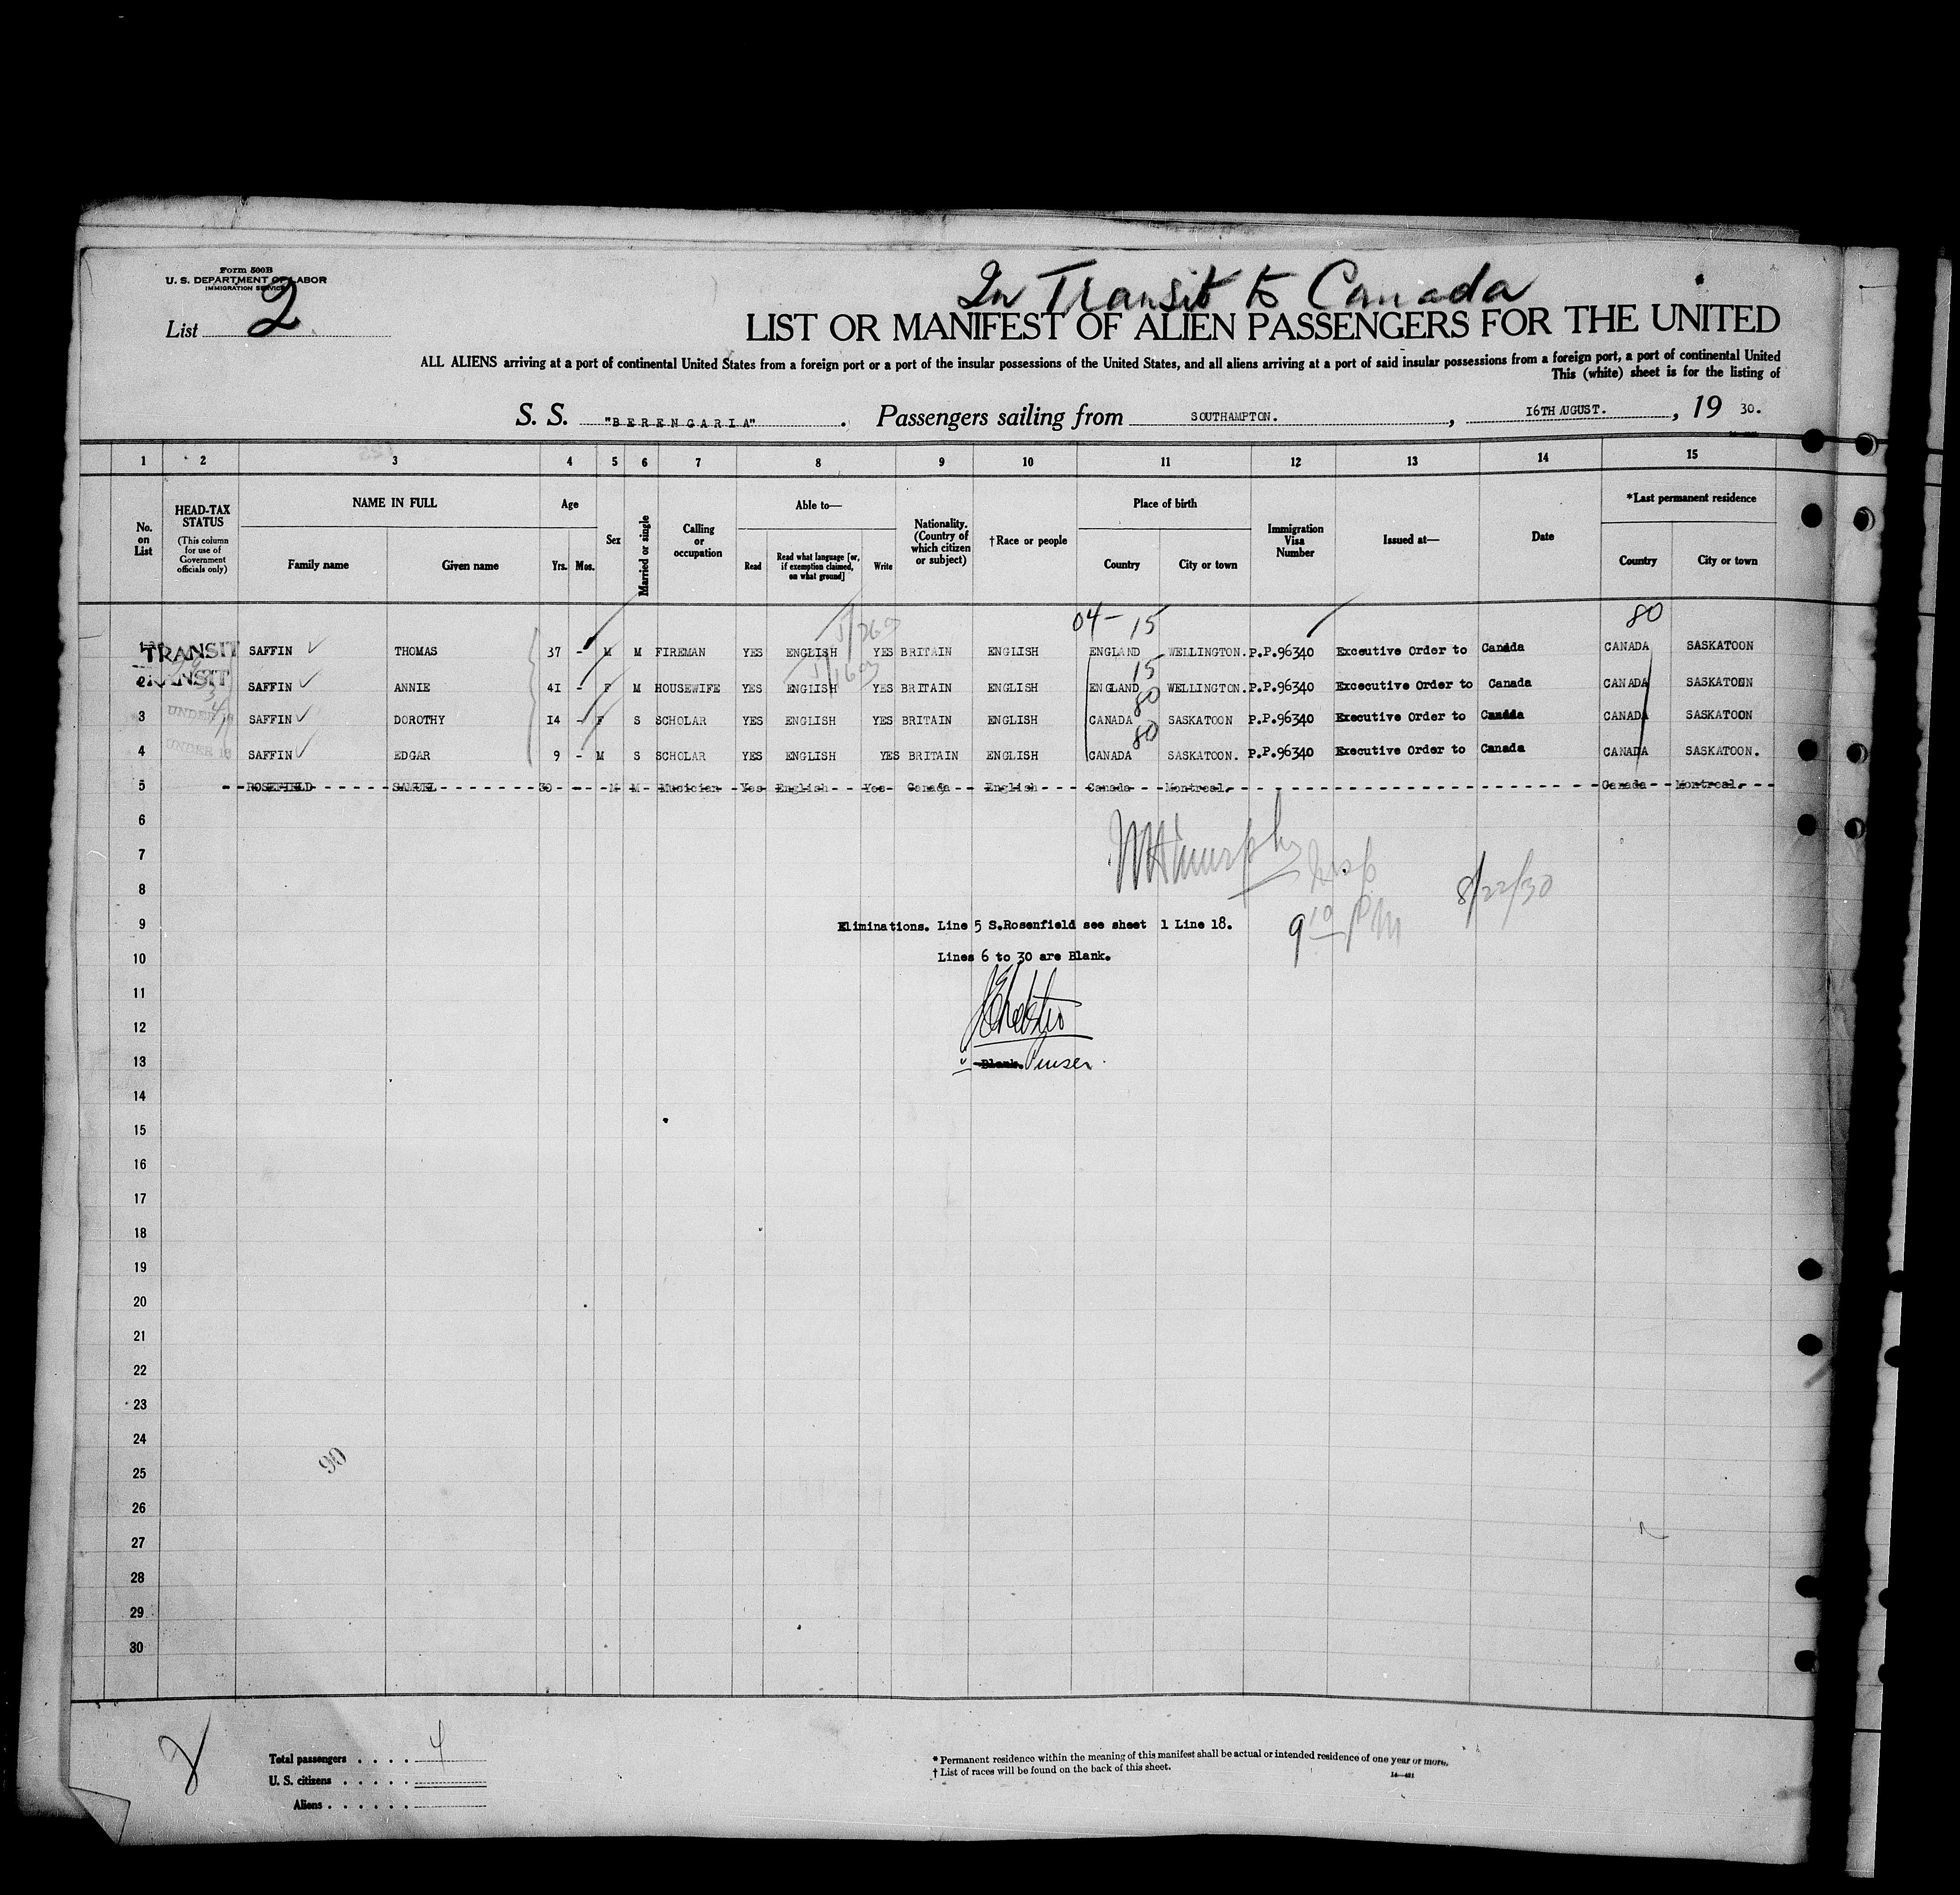 Form 500B
U. S. DEPARTMENT OF LABOR
IMMIGRATION SERVICE
List 2
In Transit to Canada
LIST OR MANIFEST OF ALIEN PASSENGERS FOR THE UNITED
ALL ALIENS arriving at a port of continental United States from a foreign port or a port of the insular possessions of the United States, and all aliens arriving at a port of said insular possessions from a foreign port, a port of continental United
This (white) sheet is for the listing of
S. S. "BERENGARIA". Passengers sailing from SOUTHAMPTON. , 16TH AUGUST. , 19 30.
1 2 3 4 5 6 7 8 9 10 11 12 13 14 15
No. on List
HEAD-TAX STATUS (This column for use of Government officials only)
NAME IN FULL Family name Given name
Age Yrs. Mos.
Sex
Married or single
Calling or occupation
Able to— Read Read what language [or, if exemption claimed, on what ground] Write
Nationality. (Country of which citizen or subject)
†Race or people
Place of birth Country City or town
Immigration Visa Number
Issued at—
Date
*Last permanent residence Country City or town
04- 15 80
TRANSIT SAFFIN THOMAS 37 - M M FIREMAN YES ENGLISH YES BRITAIN ENGLISH ENGLAND WELLINGTON. P.P.96340 Executive Order to Canada CANADA SASKATOON
15
TRANSIT SAFFIN ANNIE 41 - F M HOUSEWIFE YES ENGLISH YES BRITAIN ENGLISH ENGLAND WELLINGTON. P.P.96340 Excecutive Order to Canada CANADA SASKATOON
80
3 UNDER 16 SAFFIN DOROTHY 14 - F S SCHOLAR YES ENGLISH YES BRITAIN ENGLISH CANADA SASKATOON P.P.96340 Executive Order to Canada CANADA SASKATOON
80
4 UNDER 16 SAFFIN EDGAR 9 - M S SCHOLAR YES ENGLISH YES BRITAIN ENGLISH CANADA SASKATOON. P.P.96340 Executive Order to Canada CANADA SASKATOON.
5 ROSEFIELD SAMUEL 30 - M M Musician Yes English Yes Canada English Canada Montreal. Canada Montreal.
6
7 WH Murphy Insp
8 8/22/30
9 Eliminations. Line 5 S.Rosenfield see sheet 1 Line 18. 9 10 PM
10 Lines 6 to 30 are Blank.
11
12
13 Blank. Purser
14
15
16
17
18
19
20
21
22
23
24
90
25
26
27
28
29
30
Total passengers . . . . 4
U. S. citizens . . . . .
Aliens . . . . . .
* Permanent residence within the meaning of this manifest shall be actual or intended residence of one year or more.
† List of races will be found on the back of this sheet.